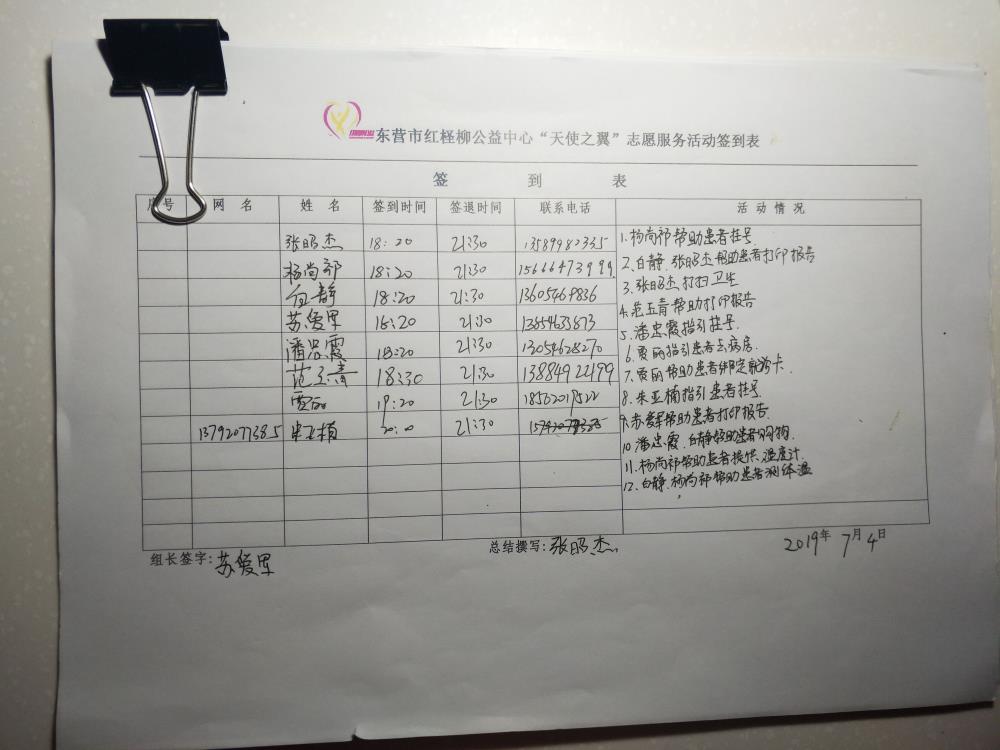 东营市红柽柳公益中心“天使之翼”志愿服务活动签到表
签 到 表
序号 网 名 姓 名 签到时间 签退时间 联系电话 活 动 情 况
张昭杰 18:20 21:30 13589982335
杨尚祁 18:20 21:30 15666473999
白静 18:20 21:30 13605469836
苏爱军 18:20 21:30
潘忠霞 18:20 21:30 13054628270
范玉青 18:30 21:30 13884922199
贾丽 19:20 21:30
13792077385 朱亚楠 20:10 21:30
1.杨尚祁帮助患者挂号
2.白静.张昭杰帮助患者打印报告
3.张昭杰打扫卫生
4.范玉青帮助打印报告
5.潘忠霞指引挂号.
6.贾丽指引患者去病房.
7.贾丽帮助患者绑定就诊卡.
8.朱亚楠指引患者挂号.
9.苏爱军帮助患者打印报告.
10.潘忠霞.白静帮助患者购物.
11.杨尚祁帮助患者提供温度计.
12.白静.杨尚祁帮助患者测体温
组长签字:苏爱军 总结撰写:张昭杰 2019年7月4日